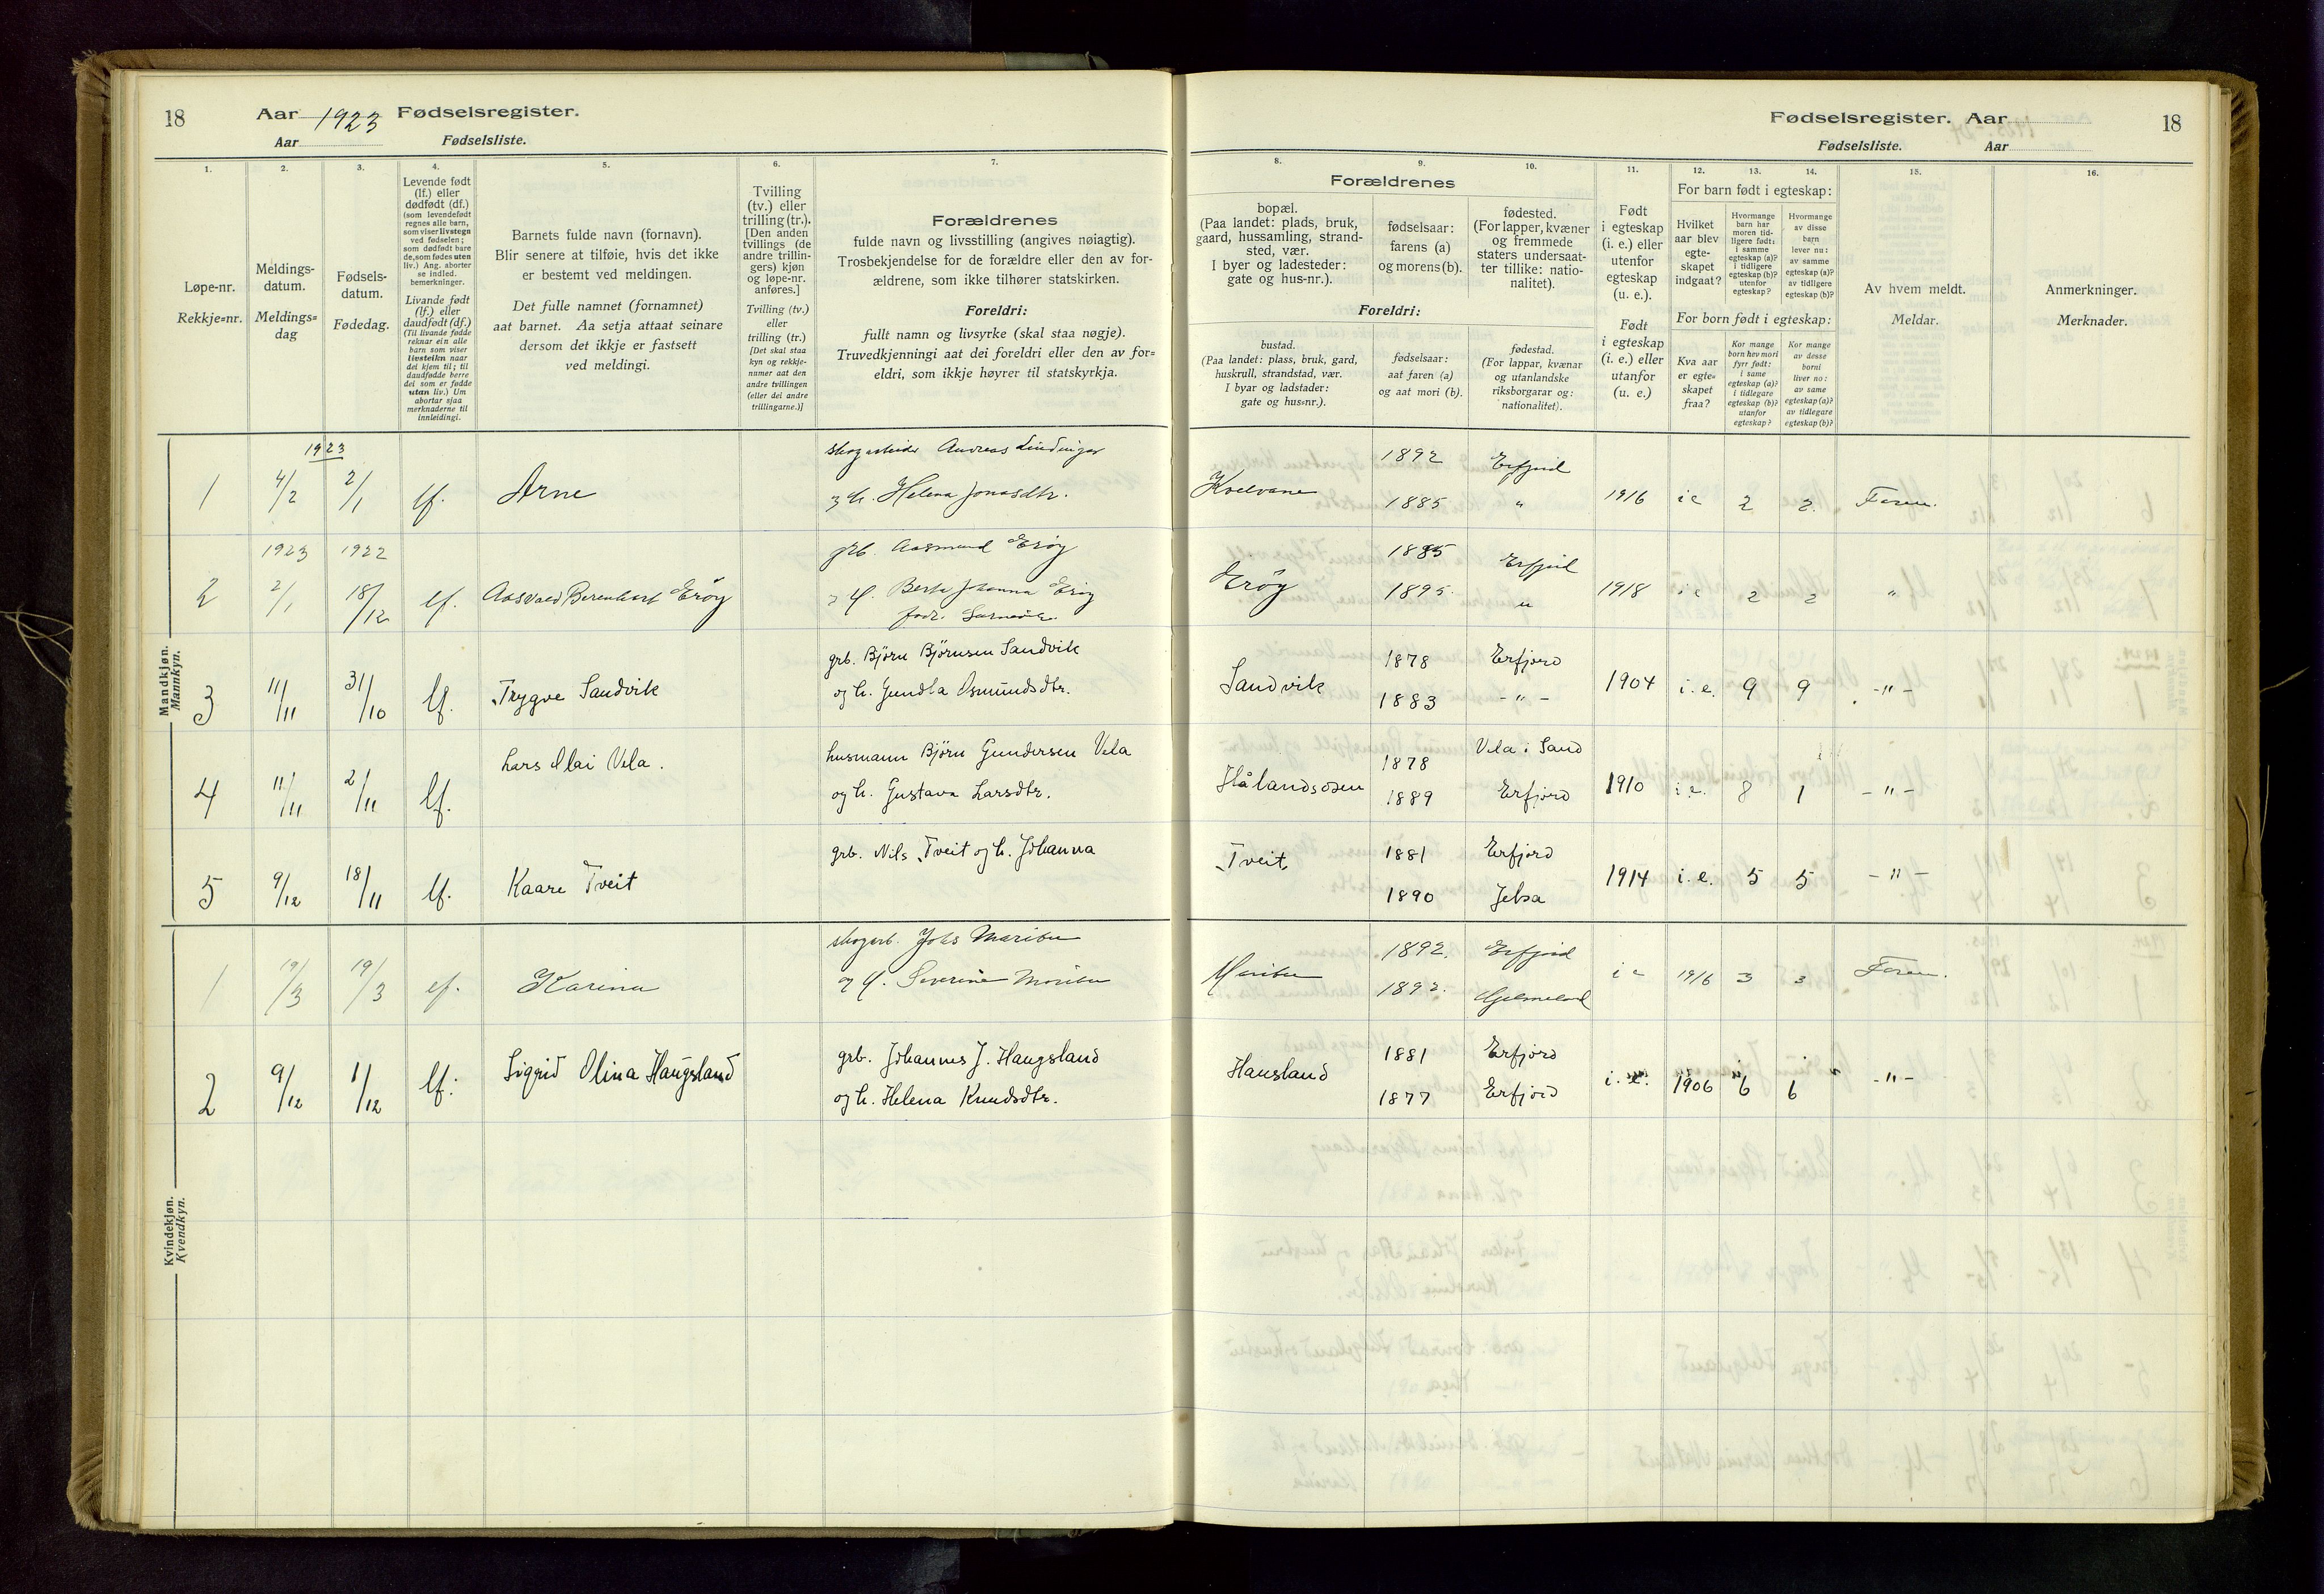 18
Aar 1923 Fødselsregister.
Aar Fødselsliste.
1.
Løpe-nr.
Rekkje=nr.
2.
Meldings-
datum.
Meldings=
dag
3.
Fødsels-
datum.
Fødedag.
4.
Levende født
(lf.) eller
dødfødt (df.)
(som levendefødt
regnes alle barn,
som viser livstegn
ved fødselen;
som dødfødt bare
de, som fødes uten
liv.) Ang. aborter
se indled.
bemerkninger.
Livande født
(lf.) eller
daudfødt (df.)
(Til livande fødde
reknar ein alle
barn som viser
livsteikn naar
dei kjem til; til
daudfødde berre
dei som er fødde
utan liv.) Um
abortar sjaa
merknaderne til
innleidingi.
5.
Barnets fulde navn (fornavn).
Blir senere at tilføie, hvis det ikke
er bestemt ved meldingen.
Det fulle namnet (fornamnet)
aat barnet. Aa setja attaat seinare
dersom det ikkje er fastsett
ved meldingi.
6.
Tvilling
(tv.) eller
trilling (tr.).
[Den anden
tvillings (de
andre trillin-
gers) kjøn
og løpe-nr.
anføres.]
Tvilling (tv.)
eller
trilling (tr.)
[Det skal staa
kyn og rekkje-
numer aat den
andre tvillingen
(eller dei andre
trillingarne.)]
7.
Forældrenes
fulde navn og livsstilling (angives nøiagtig).
Trosbekjendelse for de forældre eller den av for-
ældrene, som ikke tilhører statskirken.
Foreldri:
fullt namn og livsyrke (skal staa nøgje).
Truvedkjenningi aat dei foreldri eller den av for=
eldri, som ikkje høyrer til statskyrkja.
Fødselsregister. Aar
18
Fødselsliste. Aar
8.
Forældrenes
bopæl.
(Paa landet: plads, bruk,
gaard, hussamling, strand-
sted, vær.
I byer og ladesteder:
gate og hus-nr.).
Foreldri:
bustad.
(Paa landet: plass, bruk, gard,
huskrull, strandstad, vær.
I byar og ladstader:
gate og hus=nr.).
9.
fødselsaar:
farens (a)
og morens (b).
fødselsaar:
aat faren (a)
og aat mori (b).
10.
fødested.
(For lapper, kvæner
og fremmede
staters undersaat-
ter tillike: natio-
nalitet).
fødestad.
(For lappar, kvænar
og utanlandske
riksborgarar og:
nationalitet).
11.
Født
i egteskap
(i. e.) eller
utenfor
egteskap
(u. e.).
Født
i egteskap
(i. e.) eller
utanfor
(u. e.)
12. 13. 14.
For barn født i egteskap:
Hvilket
aar blev
egte-
skapet
indgaat?
Hvormange
barn har
moren tid-
ligere født:
i samme
egteskap (a)?
i tidligere
egteskap (b)?
utenfor
egteskap?
Hvormange
av disse
barn
lever nu:
av samme
egteskap (a)?
av tidligere
egteskap (b)?
For born født i egteskap:
Kva aar
er egte=
skapet
fraa?
Kor mange
born hev mori
fyrr født:
i same
egteskap (a)?
i tidlegare
egteskap (b)?
utanfor
egteskap?
Kor mange
av desse
borni
liver no:
av same
egteskap (a)?
av tidlegare
egteskap (b)?
15.
Av hvem meldt.
Meldar.
16.
Anmerkninger.
Merknader.
Mandkjøn.
Mannkyn.
1923
1 4/2 2/1 lf. Arne
Andreas
Helena Jonasdtr.
1892 Erfjord
1885 "
1916 i e 2 2. Faren.
1923 1922
2 2/1 18/12 lf. Aasvald Berenhart Erøy
grb. Aasmund Erøy
Johanna Erøy
Erøy 1885 Erfjord
1895 "
1918 i e 2 2 "
3 11/11 31/10 lf. Trygve Sandvik
grb. Björn Björnsen Sandvik
og h. Gundla Osmundsdtr.
Sandvik 1878 Erfjord
1883 - " -
1904 i. e. 9 9 - " -
4 11/11 2/11 lf. Lars Olai Vela.
husmann Björn Gundersen Vela
og h. Gustava Larsdtr.
Hålandsosen 1878 Vela i Sand
1889 Erfjord
1910 i. e. 8 1 - " -
5 9/12 18/11 lf. Kaare Tveit
grb. Nils Tveit og h. Johanna
Tveit 1881 Erfjord
1890 Jelsa
1914 i. e. 5 5 - " -
Kvindekjøn.
Kvendkyn.
1 19/3 19/3 lf. Karina
skogarb. Johs Maribu
og h. Severine Maribu
Maribu 1892. Erfjord
1892. Hjelmeland
i e 1916 3 3 Faren.
2 9/12 1/12 lf. Sigrid Olina Haugsland
grb. Johannes J. Haugsland
og h. Helena Knudsdtr.
Hausland 1881 Erfjord
1877 Erfjord
i. e. 1906 6 6 - " -